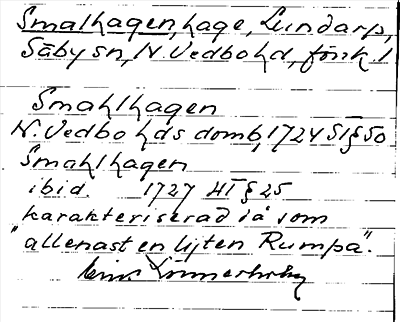 Smalhagen, hage, Lundarp,
Säby sn, N. Vedbo hd, försk. 1
Smahlhagen
N. Vedbo hds domb, 1724 ST § 50
Smahlhagen
ibid. 1727 HT § 25
karakteriserad då som
"allenast en lijten Rumpa".